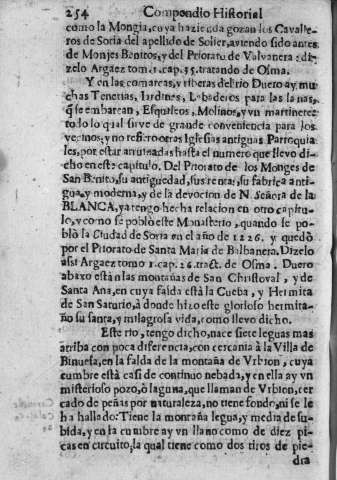 254 Compendio Historial
como la Mongia, cuya hazienda gozan los Cavalle-
ros de Soria del apellido de Solier, aviendo sido antes
de Monjes Benitos, y del Priorato de Valvanera: di-
zelo Argaez tom. 1. cap. 35. tratando de Osma.
Y en las comarcas, y riberas del rio Duero ay, mu-
chas Tenerias, Iardines, Labaderos para las lanas,
q̃ se embarcan, Esquileos, Molinos, y vn martinete:
todo lo qual sirve de grande conveniencia para los
vecinos: y no refiero otras Iglesias antiguas Parroquia
les, por estar arruinadas hasta el numero que llevo di-
cho en este capitulo. Del Priorato de los Monges de
San Benito, su antiguedad, sus rentas, su fabrica anti-
gua, y moderna, y de la devocion de N. Señora de la
BLANCA, ya tengo hecha relacion en otro capitu-
lo, v como se poblò este Monasterio, quando se po-
blò la Ciudad de Soria en el año de 1226. y quedò
por el Priorato de Santa Maria de Balbanera. Dizelo
assi Argaez tomo 1. cap. 26. tract. de Osma. Duero
abaxo està n las montañas de San Christoval, y de
Santa Ana, en cuya falda està la Cueba, y Hermita
de San Saturio, à donde hizo este glorioso hermita-
ño su santa, y milagrosa vida, como llevo dicho.
Este rio, tengo dicho, nace siete leguas mas
arriba con poca diferencia, con cercania à la Villa de
Binuesa, en la falda de la montaña de Vrbion, cuya
cumbre està casi de continuo nebada, y en ella ay vn
misterioso pozo, ò laguna, que llaman de Vrbion, cer
cado de peñas por naturaleza, no tiene fondo, ni se le
ha hallado: Tiene la montaña legua, y media de su-
bida, y en la cumbre ay vn llano como de diez pi-
cas en circuito; la qual tiene como dos tiros de pie-
dra